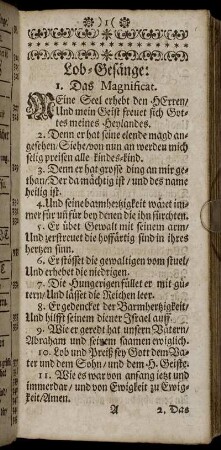 1
Lob-Gesänge:
1. Das Magnificat.
MEine Seel erhebt den HErren/
Und mein Geist freuet sich Got-
tes meines Heylandes.
2. Denn er hat seine elende magd an-
gesehen/Siehe/von nun an werden mich
selig preisen alle kindes-kind.
3. Denn er hat grosse ding an mir ge-
than/Der da mächtig ist/und des name
heilig ist.
4. Und seine barmhertzigkeit wäret im-
mer für und für bey denen die ihn fürchten.
5. Er übet Gewalt mit seinem arm/
Und zerstreuet die hoffärtig sind in ihres
hertzen sinn.
6. Er stösset die gewaltigen vom stuel/
Und erhebet die niedrigen.
7. Die Hungerigen füllet er mit gü-
tern/Und lässet die Reichen leer.
8. Er gedencket der Barmhertzigkeit/
Und hilfft seinem diener Israel auff.
9. Wie er geredt hat unsern Vätern/
Abraham und seinem saamen ewiglich.
10. Lob und Preiß sey Gott dem Va-
ter und dem Sohn/und dem H. Geiste.
11. Wie es war von anfang ietzt und
immerdar/und von Ewigkeit zu Ewig-
keit/Amen.
A 2. Das